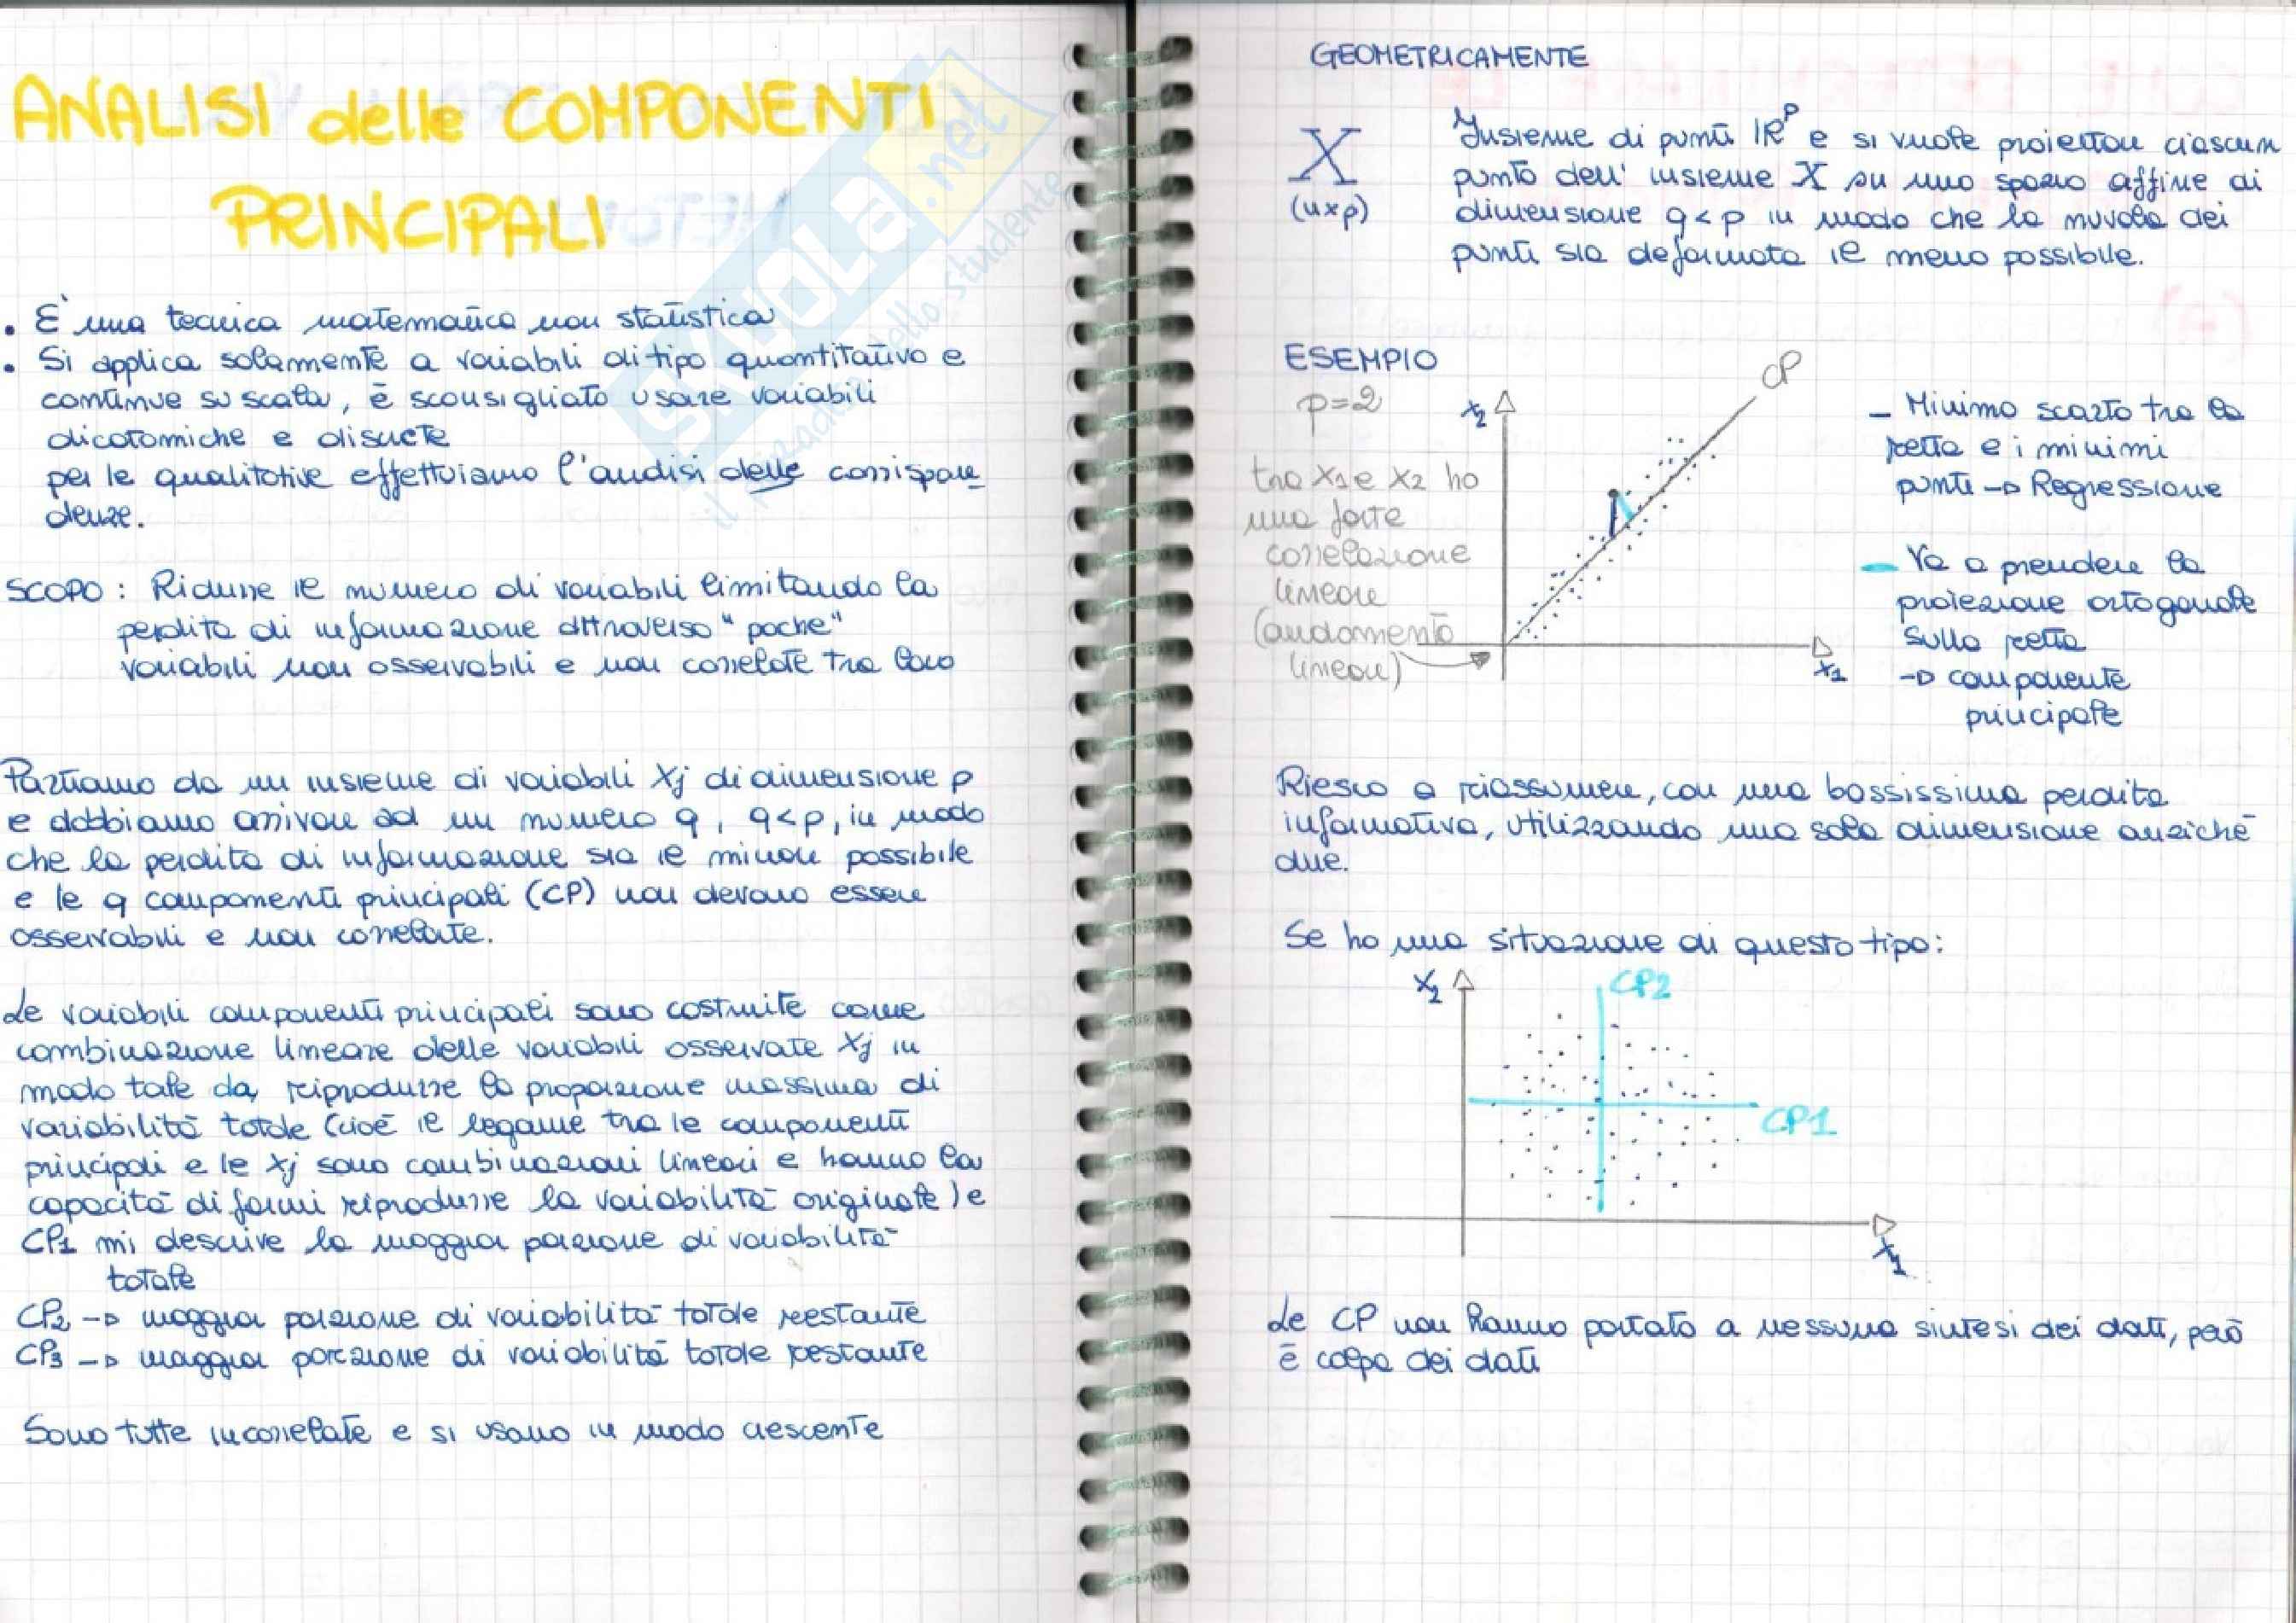 ANALISI delle COMPONENTI
PRINCIPALI
SKUOLA.net
il paradiso dello studente
• È una tecnica matematica non statistica
• Si applica solamente a variabili di tipo quantitativo e
continue su scala, è sconsigliato usare variabili
dicotomiche e discrete
per le qualitative effettuiamo l'analisi delle corrispon
denze.
SCOPO: Ridurre il numero di variabili limitando la
perdita di informazione attraverso "poche"
variabili non osservabili e non correlate tra loro
Partiamo da un insieme di variabili Xj di dimensione p
e dobbiamo arrivare ad un numero q, q<p, in modo
che la perdita di informazione sia il minore possibile
e le q componenti principali (CP) non devono essere
osservabili e non correlate.
Le variabili componenti principali sono costruite come
combinazione lineare delle variabili osservate Xj in
modo tale da riprodurre la proporzione massima di
variabilità totale (cioè il legame tra le componenti
principali e le Xj sono combinazioni lineari e hanno la
capacità di farmi riprodurre la variabilità originale) e
CP1 mi descrive la maggior porzione di variabilità
totale
CP2 → maggior porzione di variabilità totale restante
CP3 → maggior porzione di variabilità totale restante
Sono tutte incorrelate e si usano in modo crescente
GEOMETRICAMENTE
X
(n×p)
Insieme di punti ℝᵖ e si vuole proiettare ciascun
punto dell' insieme X su uno spazio affine di
dimensione q<p in modo che la nuvola dei
punti sia deformata il meno possibile.
ESEMPIO
p=2
x2
CP
tra x1 e x2 ho
una forte
correlazione
lineare
(andamento
lineare)
x1
- Minimo scarto tra la
retta e i minimi
punti → Regressione
- Va a prendere la
proiezione ortogonale
sulla retta
→ componente
principale
Riesco a riassumere, con una bassissima perdita
informativa, utilizzando una sola dimensione anziché
due.
Se ho una situazione di questo tipo:
x2
CP2
CP1
x1
Le CP non hanno portato a nessuna sintesi dei dati, però
è colpa dei dati